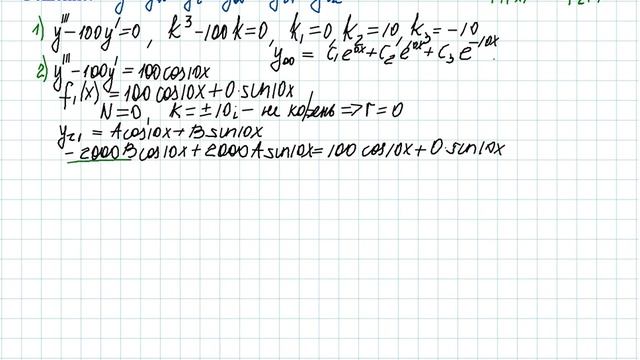 1) y''' - 100y' = 0, k³ - 100k = 0, k₁ = 0, k₂ = 10, k₃ = -10
y₀₀ = C₁e⁰ˣ + C₂e¹⁰ˣ + C₃e⁻¹⁰ˣ.
2) y''' - 100y' = 100cos10x
f₁(x) = 100cos10x + 0·sin10x
N=0, k = ±10i - не корень => r = 0
= Acos10x + Bsin10x
- 2000Bcos10x + 2000Asin10x = 100cos10x + 0·sin10x